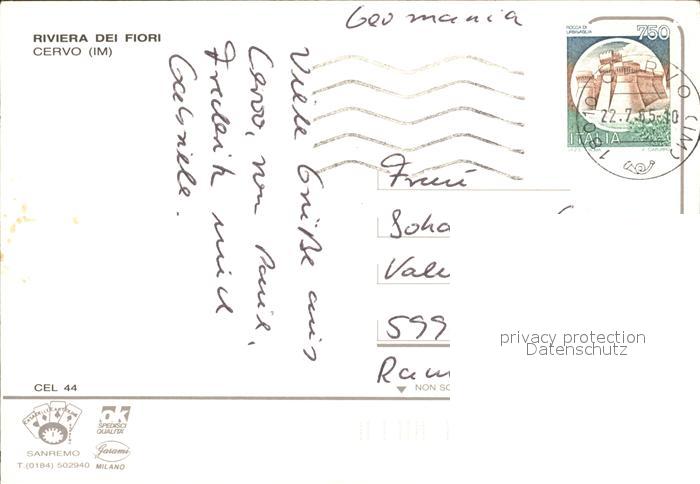 RIVIERA DEI FIORI
CERVO (IM)
Germania
Viele Grüße aus
Cervo, von Paul,
Frederik und
Gabriele.
ROCCA DI
URBISAGLIA
750
ITALIA
CERVO (IM)
22.7.85
18010
Frau
Joha
Vale
599
Ram
privacy protection
Datenschutz
NON SC
CEL 44
SANREMO
T.(0184) 502940
ok
SPEDISCI
QUALITÀ
Garami
MILANO